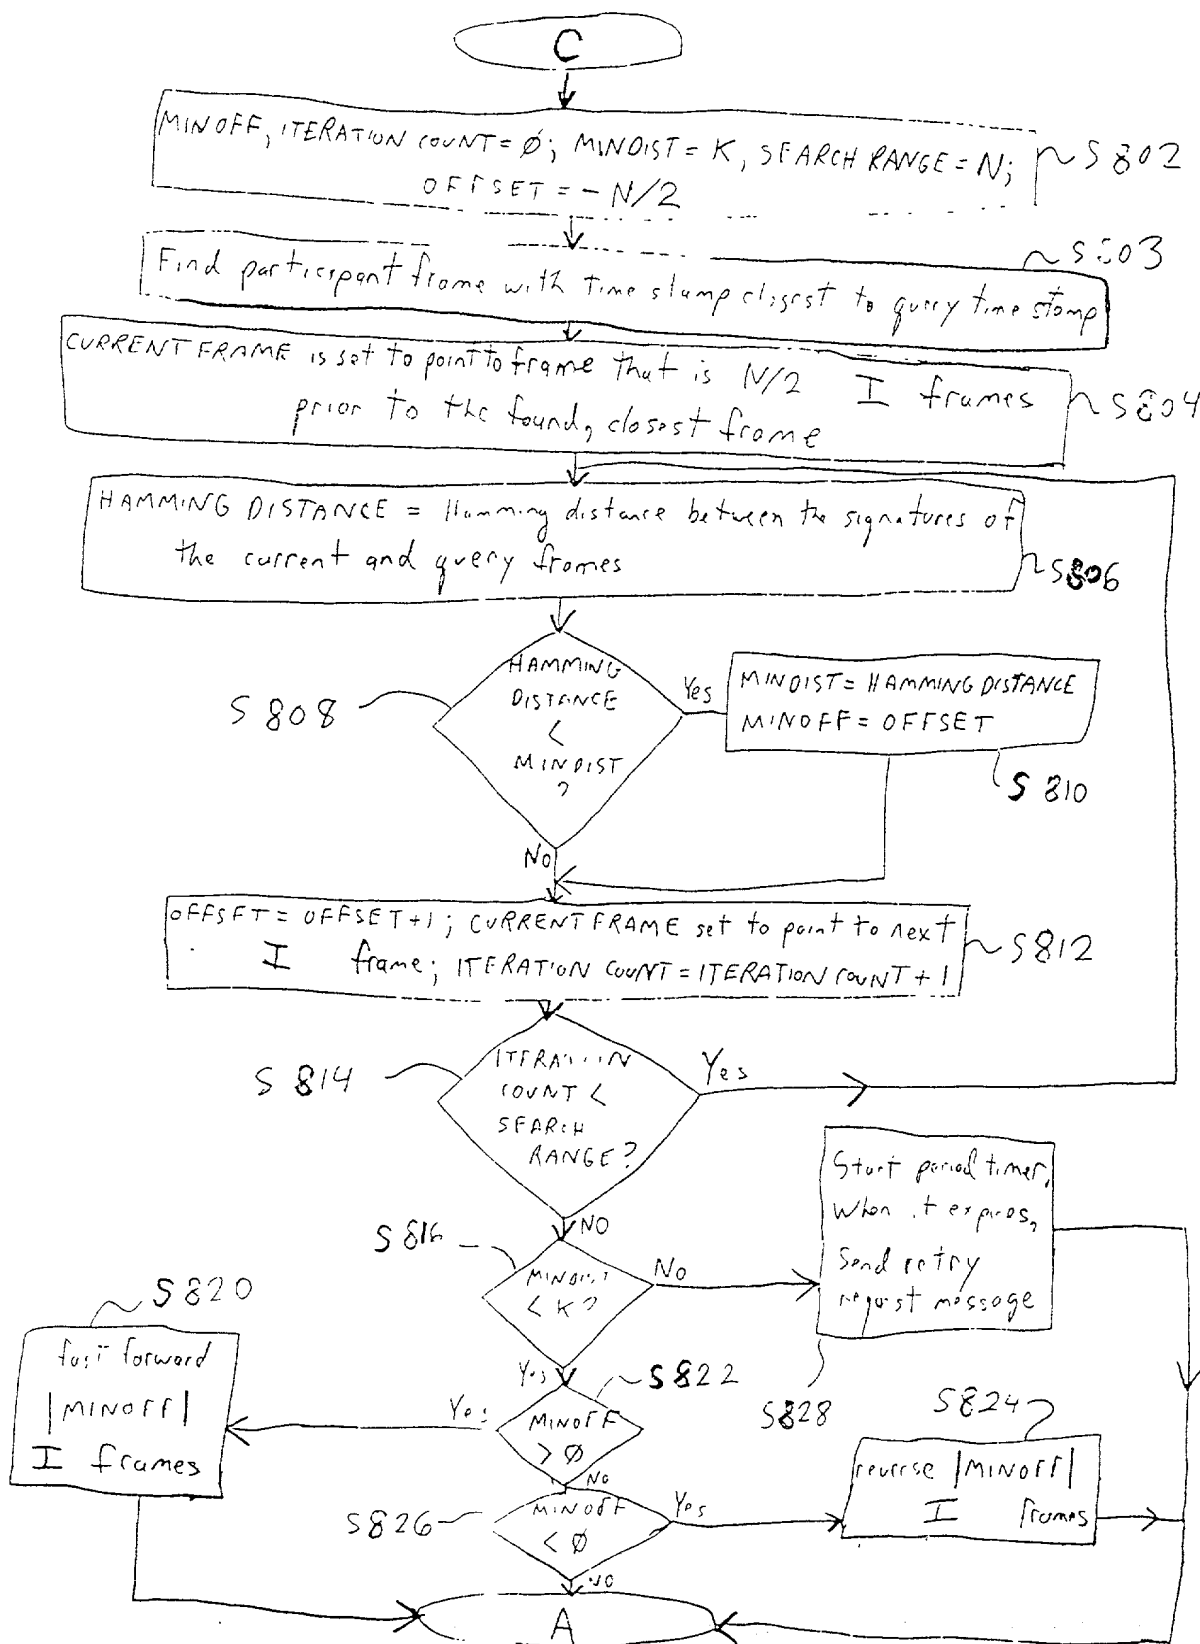 C
MINOFF, ITERATION COUNT = Ø; MINDIST = K, SEARCH RANGE = N;
OFFSET = - N/2
S802
S803
Find participant frame with time stamp closest to query time stamp
CURRENT FRAME is set to point to frame that is N/2 I frames
prior to the found, closest frame
S804
HAMMING DISTANCE = Hamming distance between the signatures of
the current and query frames
S806
HAMMING
DISTANCE
<
MINDIST
?
S 808
Yes
MINDIST = HAMMING DISTANCE
MINOFF = OFFSET
S 810
No
OFFSET = OFFSET + 1; CURRENT FRAME set to point to next
I frame; ITERATION COUNT = ITERATION COUNT + 1
S812
ITERATION
COUNT <
SEARCH
RANGE?
S 814
Yes
NO
Start period timer,
When it expires,
Send retry
request message
S828
S 816
MINDIST
< K?
No
Yes
S820
fast forward
|MINOFF|
I frames
S822
Yes
MINOFF
> Ø
No
S824
reverse |MINOFF|
I frames
S826
MINOFF
< Ø
Yes
NO
A